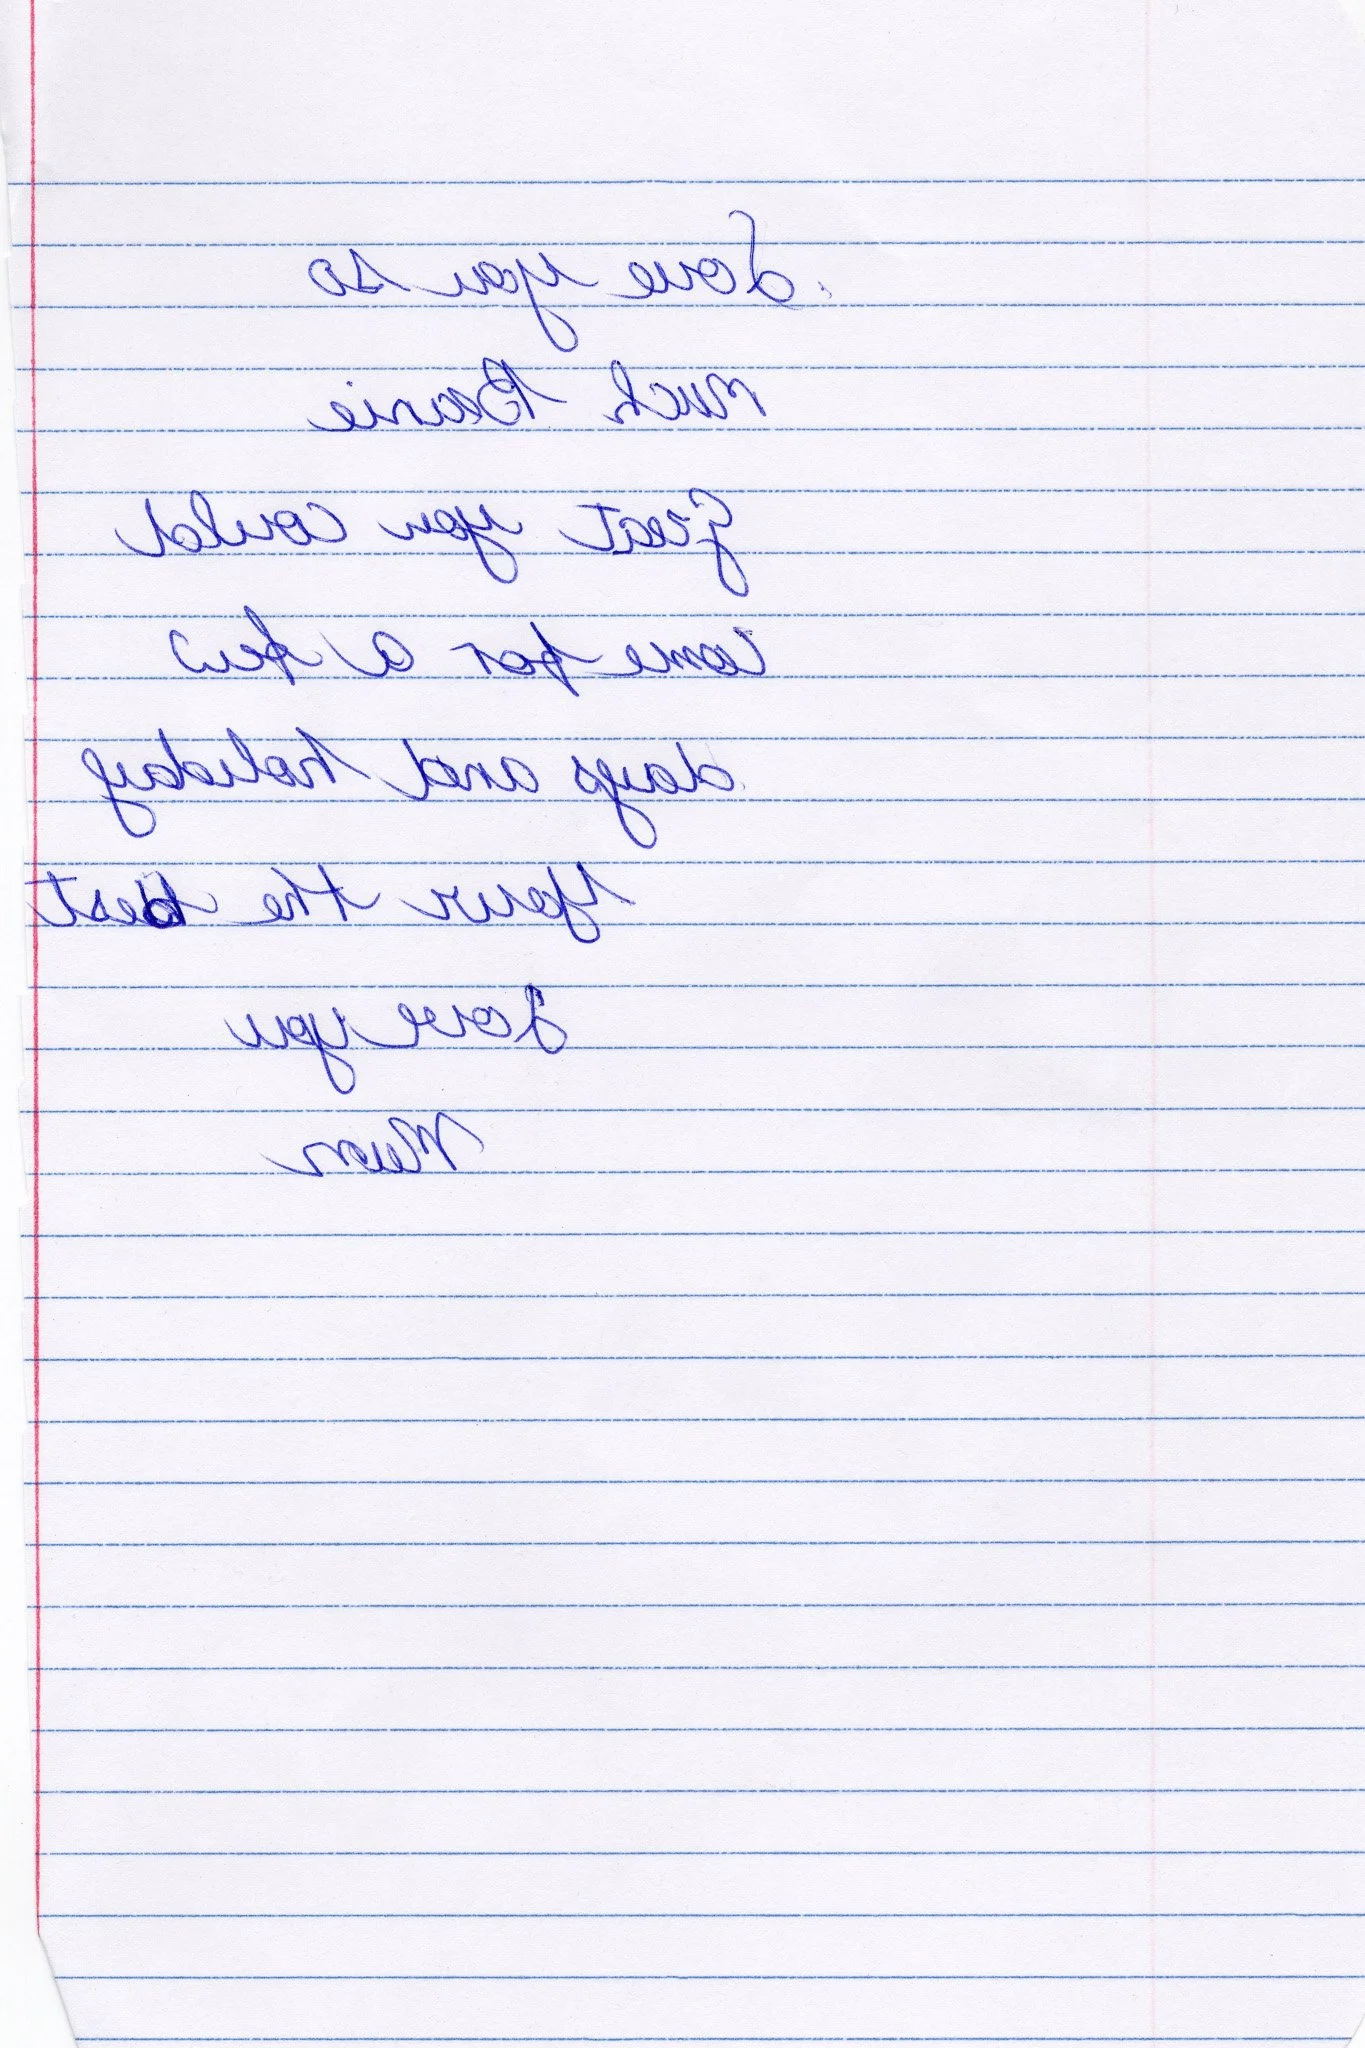 Love you so
Much Beanie
Great you could
come for a few
days and holiday
Your the best
Love you
Mum